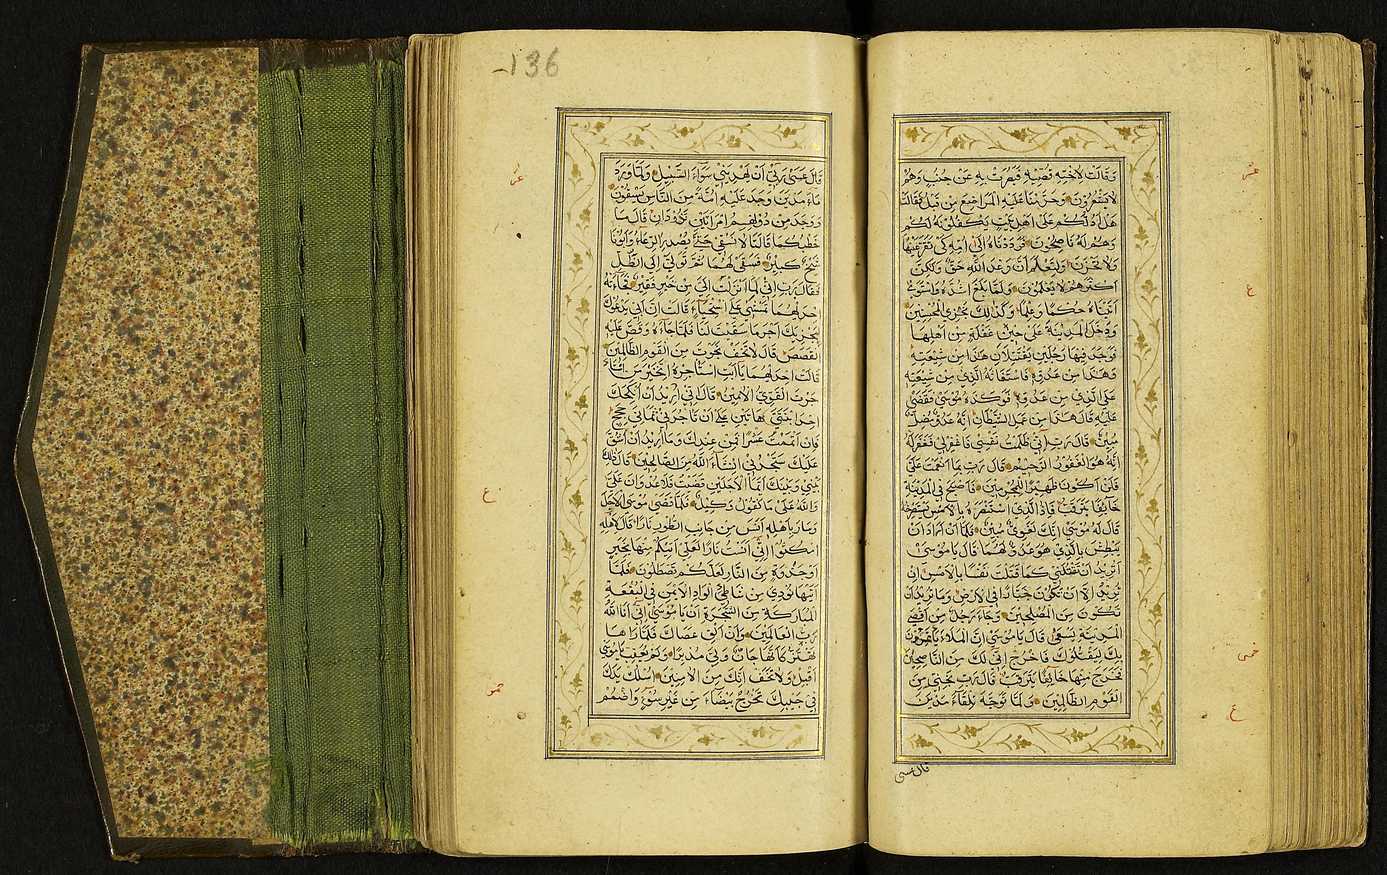 وَقَالَتْ لِاُخْتِهِ قُصِّيهِ فَبَصُرَتْ بِهِ عَنْ جُنُبٍ وَهُمْ
لَا يَشْعُرُونَ وَحَرَّمْنَا عَلَيْهِ الْمَرَاضِعَ مِنْ قَبْلُ فَقَالَتْ
هَلْ اَدُلُّكُمْ عَلَى اَهْلِ بَيْتٍ يَكْفُلُونَهُ لَكُمْ
وَهُمْ لَهُ نَاصِحُونَ فَرَدَدْنَاهُ اِلَى اُمِّهِ كَيْ تَقَرَّ عَيْنُهَا
وَلَا تَحْزَنَ وَلِتَعْلَمَ اَنَّ وَعْدَ اللّٰهِ حَقٌّ وَلٰكِنَّ
اَكْثَرَهُمْ لَا يَعْلَمُونَ وَلَمَّا بَلَغَ اَشُدَّهُ وَاسْتَوٰى
اٰتَيْنَاهُ حُكْمًا وَعِلْمًا وَكَذٰلِكَ نَجْزِي الْمُحْسِنِينَ
وَدَخَلَ الْمَدِينَةَ عَلٰى حِينِ غَفْلَةٍ مِنْ اَهْلِهَا
فَوَجَدَ فِيهَا رَجُلَيْنِ يَقْتَتِلَانِ هٰذَا مِنْ شِيعَتِهِ
وَهٰذَا مِنْ عَدُوِّهِ فَاسْتَغَاثَهُ الَّذِي مِنْ شِيعَتِهِ
عَلَى الَّذِي مِنْ عَدُوِّهِ فَوَكَزَهُ مُوسٰى فَقَضٰى
عَلَيْهِ قَالَ هٰذَا مِنْ عَمَلِ الشَّيْطَانِ اِنَّهُ عَدُوٌّ مُضِلٌّ
مُبِينٌ قَالَ رَبِّ اِنِّي ظَلَمْتُ نَفْسِي فَاغْفِرْ لِي فَغَفَرَ لَهُ
اِنَّهُ هُوَ الْغَفُورُ الرَّحِيمُ قَالَ رَبِّ بِمَا اَنْعَمْتَ عَلَيَّ
فَلَنْ اَكُونَ ظَهِيرًا لِلْمُجْرِمِينَ فَاَصْبَحَ فِي الْمَدِينَةِ
خَائِفًا يَتَرَقَّبُ فَاِذَا الَّذِي اسْتَنْصَرَهُ بِالْاَمْسِ يَسْتَصْرِخُهُ
قَالَ لَهُ مُوسٰى اِنَّكَ لَغَوِيٌّ مُبِينٌ فَلَمَّا اَنْ اَرَادَ اَنْ
يَبْطِشَ بِالَّذِي هُوَ عَدُوٌّ لَهُمَا قَالَ يَا مُوسٰى
اَتُرِيدُ اَنْ تَقْتُلَنِي كَمَا قَتَلْتَ نَفْسًا بِالْاَمْسِ اِنْ
تُرِيدُ اِلَّا اَنْ تَكُونَ جَبَّارًا فِي الْاَرْضِ وَمَا تُرِيدُ اَنْ
تَكُونَ مِنَ الْمُصْلِحِينَ وَجَاءَ رَجُلٌ مِنْ اَقْصَى
الْمَدِينَةِ يَسْعٰى قَالَ يَا مُوسٰى اِنَّ الْمَلَاَ يَأْتَمِرُونَ
بِكَ لِيَقْتُلُوكَ فَاخْرُجْ اِنِّي لَكَ مِنَ النَّاصِحِينَ
فَخَرَجَ مِنْهَا خَائِفًا يَتَرَقَّبُ قَالَ رَبِّ نَجِّنِي مِنَ
الْقَوْمِ الظَّالِمِينَ وَلَمَّا تَوَجَّهَ تِلْقَاءَ مَدْيَنَ
قال عسى
136
قَالَ عَسٰى رَبِّي اَنْ يَهْدِيَنِي سَوَاءَ السَّبِيلِ وَلَمَّا وَرَدَ
مَاءَ مَدْيَنَ وَجَدَ عَلَيْهِ اُمَّةً مِنَ النَّاسِ يَسْقُونَ
وَوَجَدَ مِنْ دُونِهِمُ امْرَاَتَيْنِ تَذُودَانِ قَالَ مَا
خَطْبُكُمَا قَالَتَا لَا نَسْقِي حَتّٰى يُصْدِرَ الرِّعَاءُ وَاَبُونَا
شَيْخٌ كَبِيرٌ فَسَقٰى لَهُمَا ثُمَّ تَوَلّٰى اِلَى الظِّلِّ
فَقَالَ رَبِّ اِنِّي لِمَا اَنْزَلْتَ اِلَيَّ مِنْ خَيْرٍ فَقِيرٌ فَجَاءَتْهُ
اِحْدٰيهُمَا تَمْشِي عَلَى اسْتِحْيَاءٍ قَالَتْ اِنَّ اَبِي يَدْعُوكَ
لِيَجْزِيَكَ اَجْرَ مَا سَقَيْتَ لَنَا فَلَمَّا جَاءَهُ وَقَصَّ عَلَيْهِ
الْقَصَصَ قَالَ لَا تَخَفْ نَجَوْتَ مِنَ الْقَوْمِ الظَّالِمِينَ
قَالَتْ اِحْدٰيهُمَا يَا اَبَتِ اسْتَأْجِرْهُ اِنَّ خَيْرَ مَنِ اسْتَأْ
جَرْتَ الْقَوِيُّ الْاَمِينُ قَالَ اِنِّي اُرِيدُ اَنْ اُنْكِحَكَ
اِحْدَى ابْنَتَيَّ هَاتَيْنِ عَلٰى اَنْ تَأْجُرَنِي ثَمَانِيَ حِجَجٍ
فَاِنْ اَتْمَمْتَ عَشْرًا فَمِنْ عِنْدِكَ وَمَا اُرِيدُ اَنْ اَشُقَّ
عَلَيْكَ سَتَجِدُنِي اِنْ شَاءَ اللّٰهُ مِنَ الصَّالِحِينَ قَالَ ذٰلِكَ
بَيْنِي وَبَيْنَكَ اَيَّمَا الْاَجَلَيْنِ قَضَيْتُ فَلَا عُدْوَانَ عَلَيَّ
وَاللّٰهُ عَلٰى مَا نَقُولُ وَكِيلٌ فَلَمَّا قَضٰى مُوسَى الْاَجَلَ
وَسَارَ بِاَهْلِهِ اٰنَسَ مِنْ جَانِبِ الطُّورِ نَارًا قَالَ لِاَهْلِهِ
امْكُثُوا اِنِّي اٰنَسْتُ نَارًا لَعَلِّي اٰتِيكُمْ مِنْهَا بِخَبَرٍ
اَوْ جَذْوَةٍ مِنَ النَّارِ لَعَلَّكُمْ تَصْطَلُونَ فَلَمَّا
اَتٰيهَا نُودِيَ مِنْ شَاطِئِ الْوَادِ الْاَيْمَنِ فِي الْبُقْعَةِ
الْمُبَارَكَةِ مِنَ الشَّجَرَةِ اَنْ يَا مُوسٰى اِنِّي اَنَا اللّٰهُ
رَبُّ الْعَالَمِينَ وَاَنْ اَلْقِ عَصَاكَ فَلَمَّا رَاٰهَا
تَهْتَزُّ كَاَنَّهَا جَانٌّ وَلّٰى مُدْبِرًا وَلَمْ يُعَقِّبْ يَا مُوسٰى
اَقْبِلْ وَلَا تَخَفْ اِنَّكَ مِنَ الْاٰمِنِينَ اُسْلُكْ يَدَكَ
فِي جَيْبِكَ تَخْرُجْ بَيْضَاءَ مِنْ غَيْرِ سُوءٍ وَاضْمُمْ